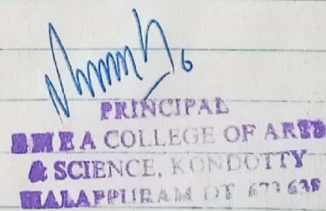 6
PRINCIPAL
EMEA COLLEGE OF ARTS
& SCIENCE, KONDOTTY
MALAPPURAM DT 673638